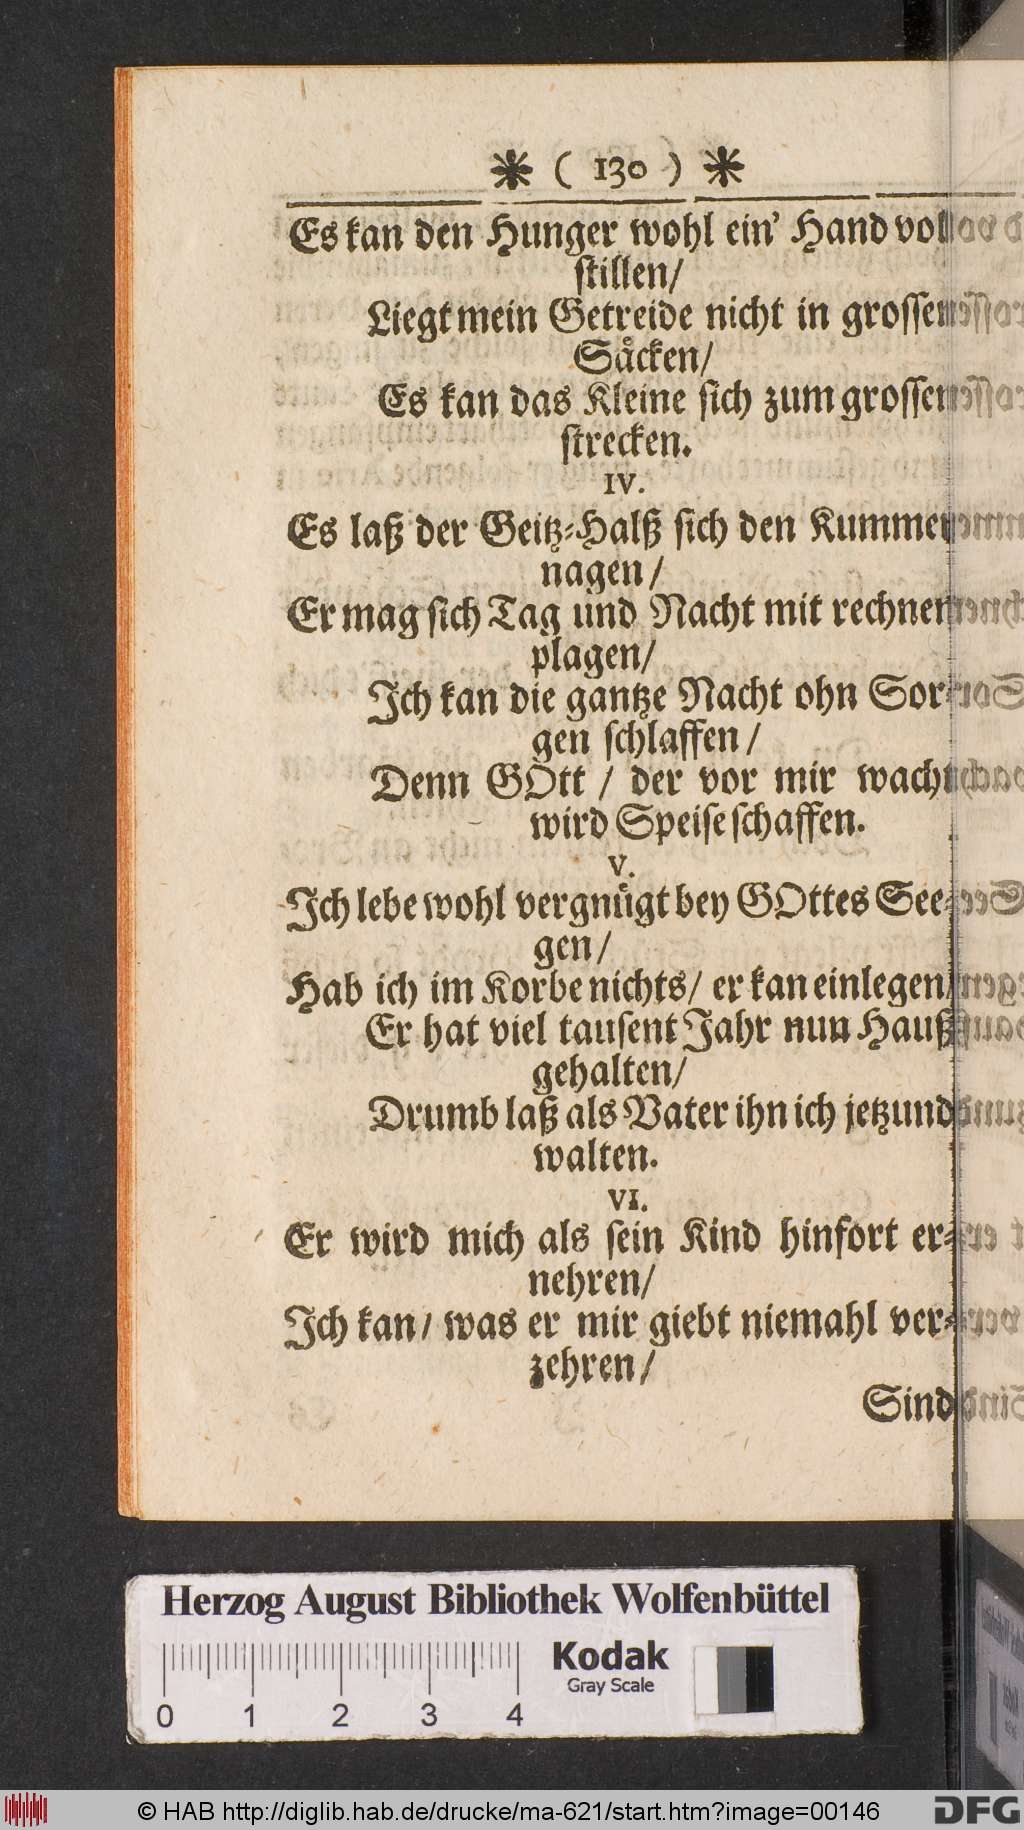 * ( 130 ) *
Es kan den Hunger wohl ein' Hand voll
stillen/
Liegt mein Getreide nicht in grossen
Såcken/
Es kan das Kleine sich zum grossen
strecken.
IV.
Es laß der Geitz-Halß sich den Kummer
nagen/
Er mag sich Tag und Nacht mit rechnen
plagen/
Ich kan die gantze Nacht ohn Sor-
gen schlaffen/
Denn GOtt / der vor mir wacht
wird Speise schaffen.
V.
Ich lebe wohl vergnůgt bey GOttes See-
gen/
Hab ich im Korbe nichts/ er kan einlegen/
Er hat viel tausent Jahr nun Hauß
gehalten/
Drumb laß als Vater ihn ich jetzund
walten.
VI.
Er wird mich als sein Kind hinfort er-
nehren/
Ich kan/ was er mir giebt niemahl ver-
zehren/
Sind
Herzog August Bibliothek Wolfenbüttel
Kodak
Gray Scale
0 1 2 3 4
© HAB http://diglib.hab.de/drucke/ma-621/start.htm?image=00146
DFG